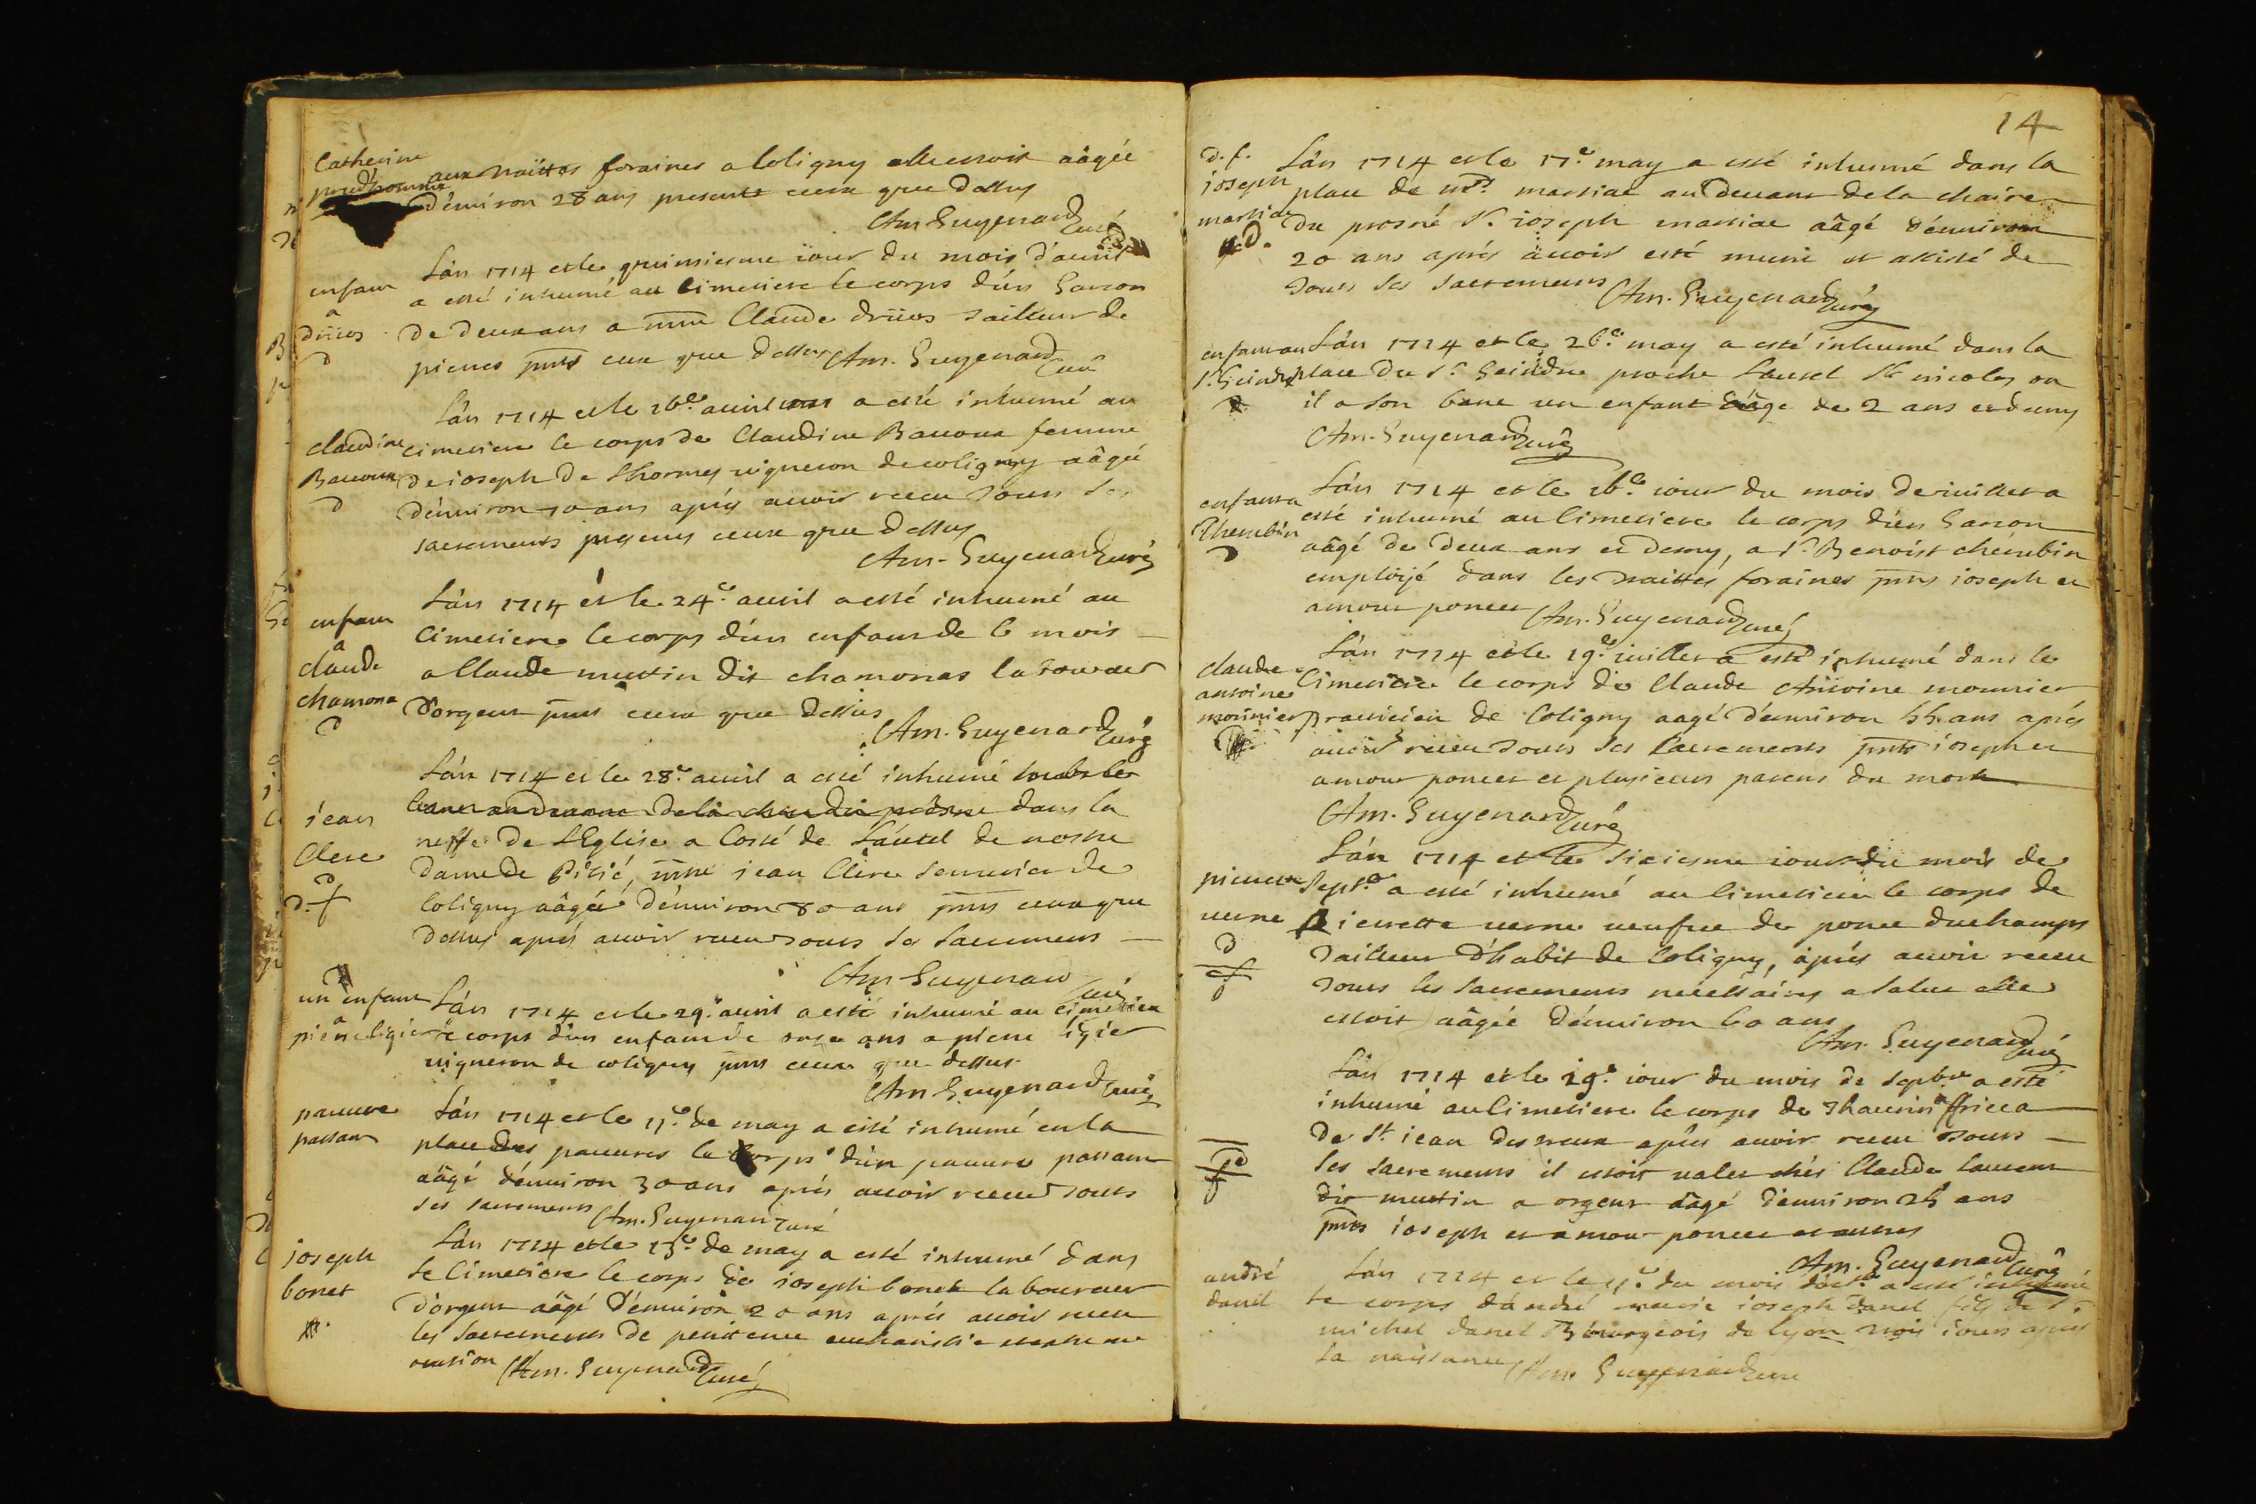 Catherine
prudhomme
aux traittes foraines a Coligny elle estoit aâgée
d'émiron 28 ans presents ceux que dessus
Am Guyenard curé
enfant
a
driios
D
Lán 1714 et le quinsiesme iour du mois d'auril
a esté inhumé au Cimetiere le corps d'ún Garcon
de deux ans a mre Claude driios tailleur de
pierres pnts ceux que dessus Am. Guyenard curé
Claudine
Bauoux
D
Lán 1714 et le 16e auril a esté inhumé au
cimetiere le corps de Claudine Bauoux femme
de ioseph de Lhormes uigneron de coligny aâgé
d'énuiron 70 ans aprés auoir receu tous les
sacrements presents ceux que dessus
Am. Guyenard curé
enfant
a
claude
chamona
D
Lán 1714 ét le 24e auril a esté inhumé au
Cimetiere le corps d'ún enfant de 6 mois
a Claude mustin dit chamonas laboureur
d'orgeut pnts ceux que dessus
Am. Guyenard curé
iean
Clere
D
D. f
Lán 1714 et le 28e auril a esté inhumé
dans la
neffe de L'Eglise a Costé de Láutel de nostre
Dame de Pitié, mre iean Clere serrurier de
Coligny aâgée d'énuiron 80 ans pnts ceux que
dessus aprés auoir receu tous les sacrements
Am Guyenard curé
un enfant
a
pierre ligier
Lán 1714 et le 29e auril a esté inhumé au cimetiere
le corps d'ún enfant de ans a pierre ligier
uigneron de coligny pnts ceux que dessus
Am Guyenard curé
pauure
passant
Lán 1714 et le 11e de may a esté inhumé en la
place des pauures le corps d'ún pauure passant
aâgé d'énuiron 30 ans aprés auoir receu touts
les sacrements Am. Guyenard curé
ioseph
bonet
Lán 1714 et le 13e de may a esté inhumé dans
le Cimetiere le corps de ioseph bonet laboureur
d'orgeut aâgé d'énuiron 20 ans aprés auoir receu
les sacrements de penitence eucharistie et extreme
onction Am. Guyenard curé
14
D. f.
ioseph
marsiac
D.
Lán 1714 et le 17e may a esté inhumé dans la
place de mrs. marsiac au deuant de la chaire
du prosné Sr. ioseph marsiac aâgé d'énuiron
20 ans aprés auoir esté muni et assisté de
tous les sacrements Am. Guyenard curé
enfant au
Sr. Geindre
Lán 1714 et le 26e may a esté inhumé dans la
place du Sr. Geindre proche Lautel St nicolas ou
il a son banc un enfant âge de 2 ans et demy
Am. Guyenard curé
enfant a
Cherubin
D
Lán 1714 et le 16e iour du mois de iuillet a
esté inhumé au Cimetiere le corps d'ún Garcon
aâgé de deux ans et demy, a Sr. Benoist chérubin
employé dans les traittés foraines pnts ioseph et
amour poncet Am. Guyenard curé
claude
antoine
mounier
Lán 1714 et le 19e iuillet a esté inhumé dans le
Cimetiere le corps de Claude Antoine mounier
praticien de Coligny aagé d'énuiron 55 ans aprés
auoir receu touts les sacrements pnts ioseph et
amour poncet et plusieurs parens du mort
Am. Guyenard curé
pierrette
uerne
D
f
Lán 1714 et le sixiesme iour du mois de
Septre a esté inhumé au Cimetiere le corps de
Pierrette uerne ueufue de ponce duchamps
tailleur d'habit de Coligny, aprés auoir receu
tous les sacrements nécessaires a salut elle
estoit aâgée d'énuiron 60 ans
Am. Guyenard curé
Lán 1714 et le 19e iour du mois de Septbre a esté
inhumé au Cimetiere le corps de Thaurin ffricca
de St. iean des aprés auoir receu tous
les sacrements il estoit ualet chés Claude Laurent
dit mustin a orgeut aâgé d'énuiron 25 ans
pnts ioseph et amour poncet et autres
Am. Guyenard curé
andré
danel
Lán 1714 et le 11e du mois d'oct. a esté inhumé
le corps d'ándré marie ioseph danel fils de Sr.
michel danel Bourgeois de Lyon trois iours aprés
sa naissance Am. Guyenard curé